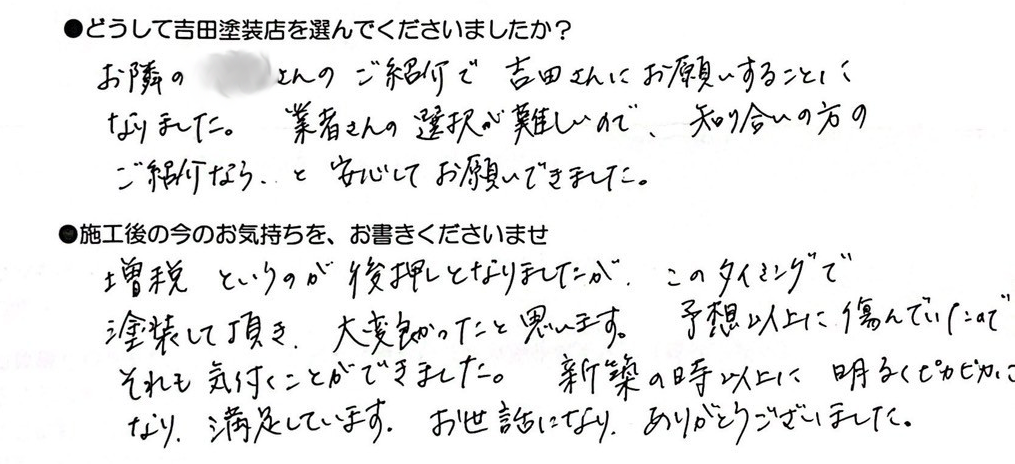 ●どうして吉田塗装店を選んでくださいましたか?
お隣の さんの ご紹介で 吉田さんに お願いすることに
なりました。 業者さんの 選択が 難しいので、知り合いの方の
ご紹介なら、と 安心して お願いできました。
●施工後の今のお気持ちを、お書きくださいませ
増税 というのが 後押しとなりましたが、このタイミングで
塗装して頂き、大変良かったと 思います。 予想以上に 傷んでいたので
それも 気付くことができました。 新築の時以上に 明るくピカピカに
なり、満足しています。 お世話になり、ありがとうございました。